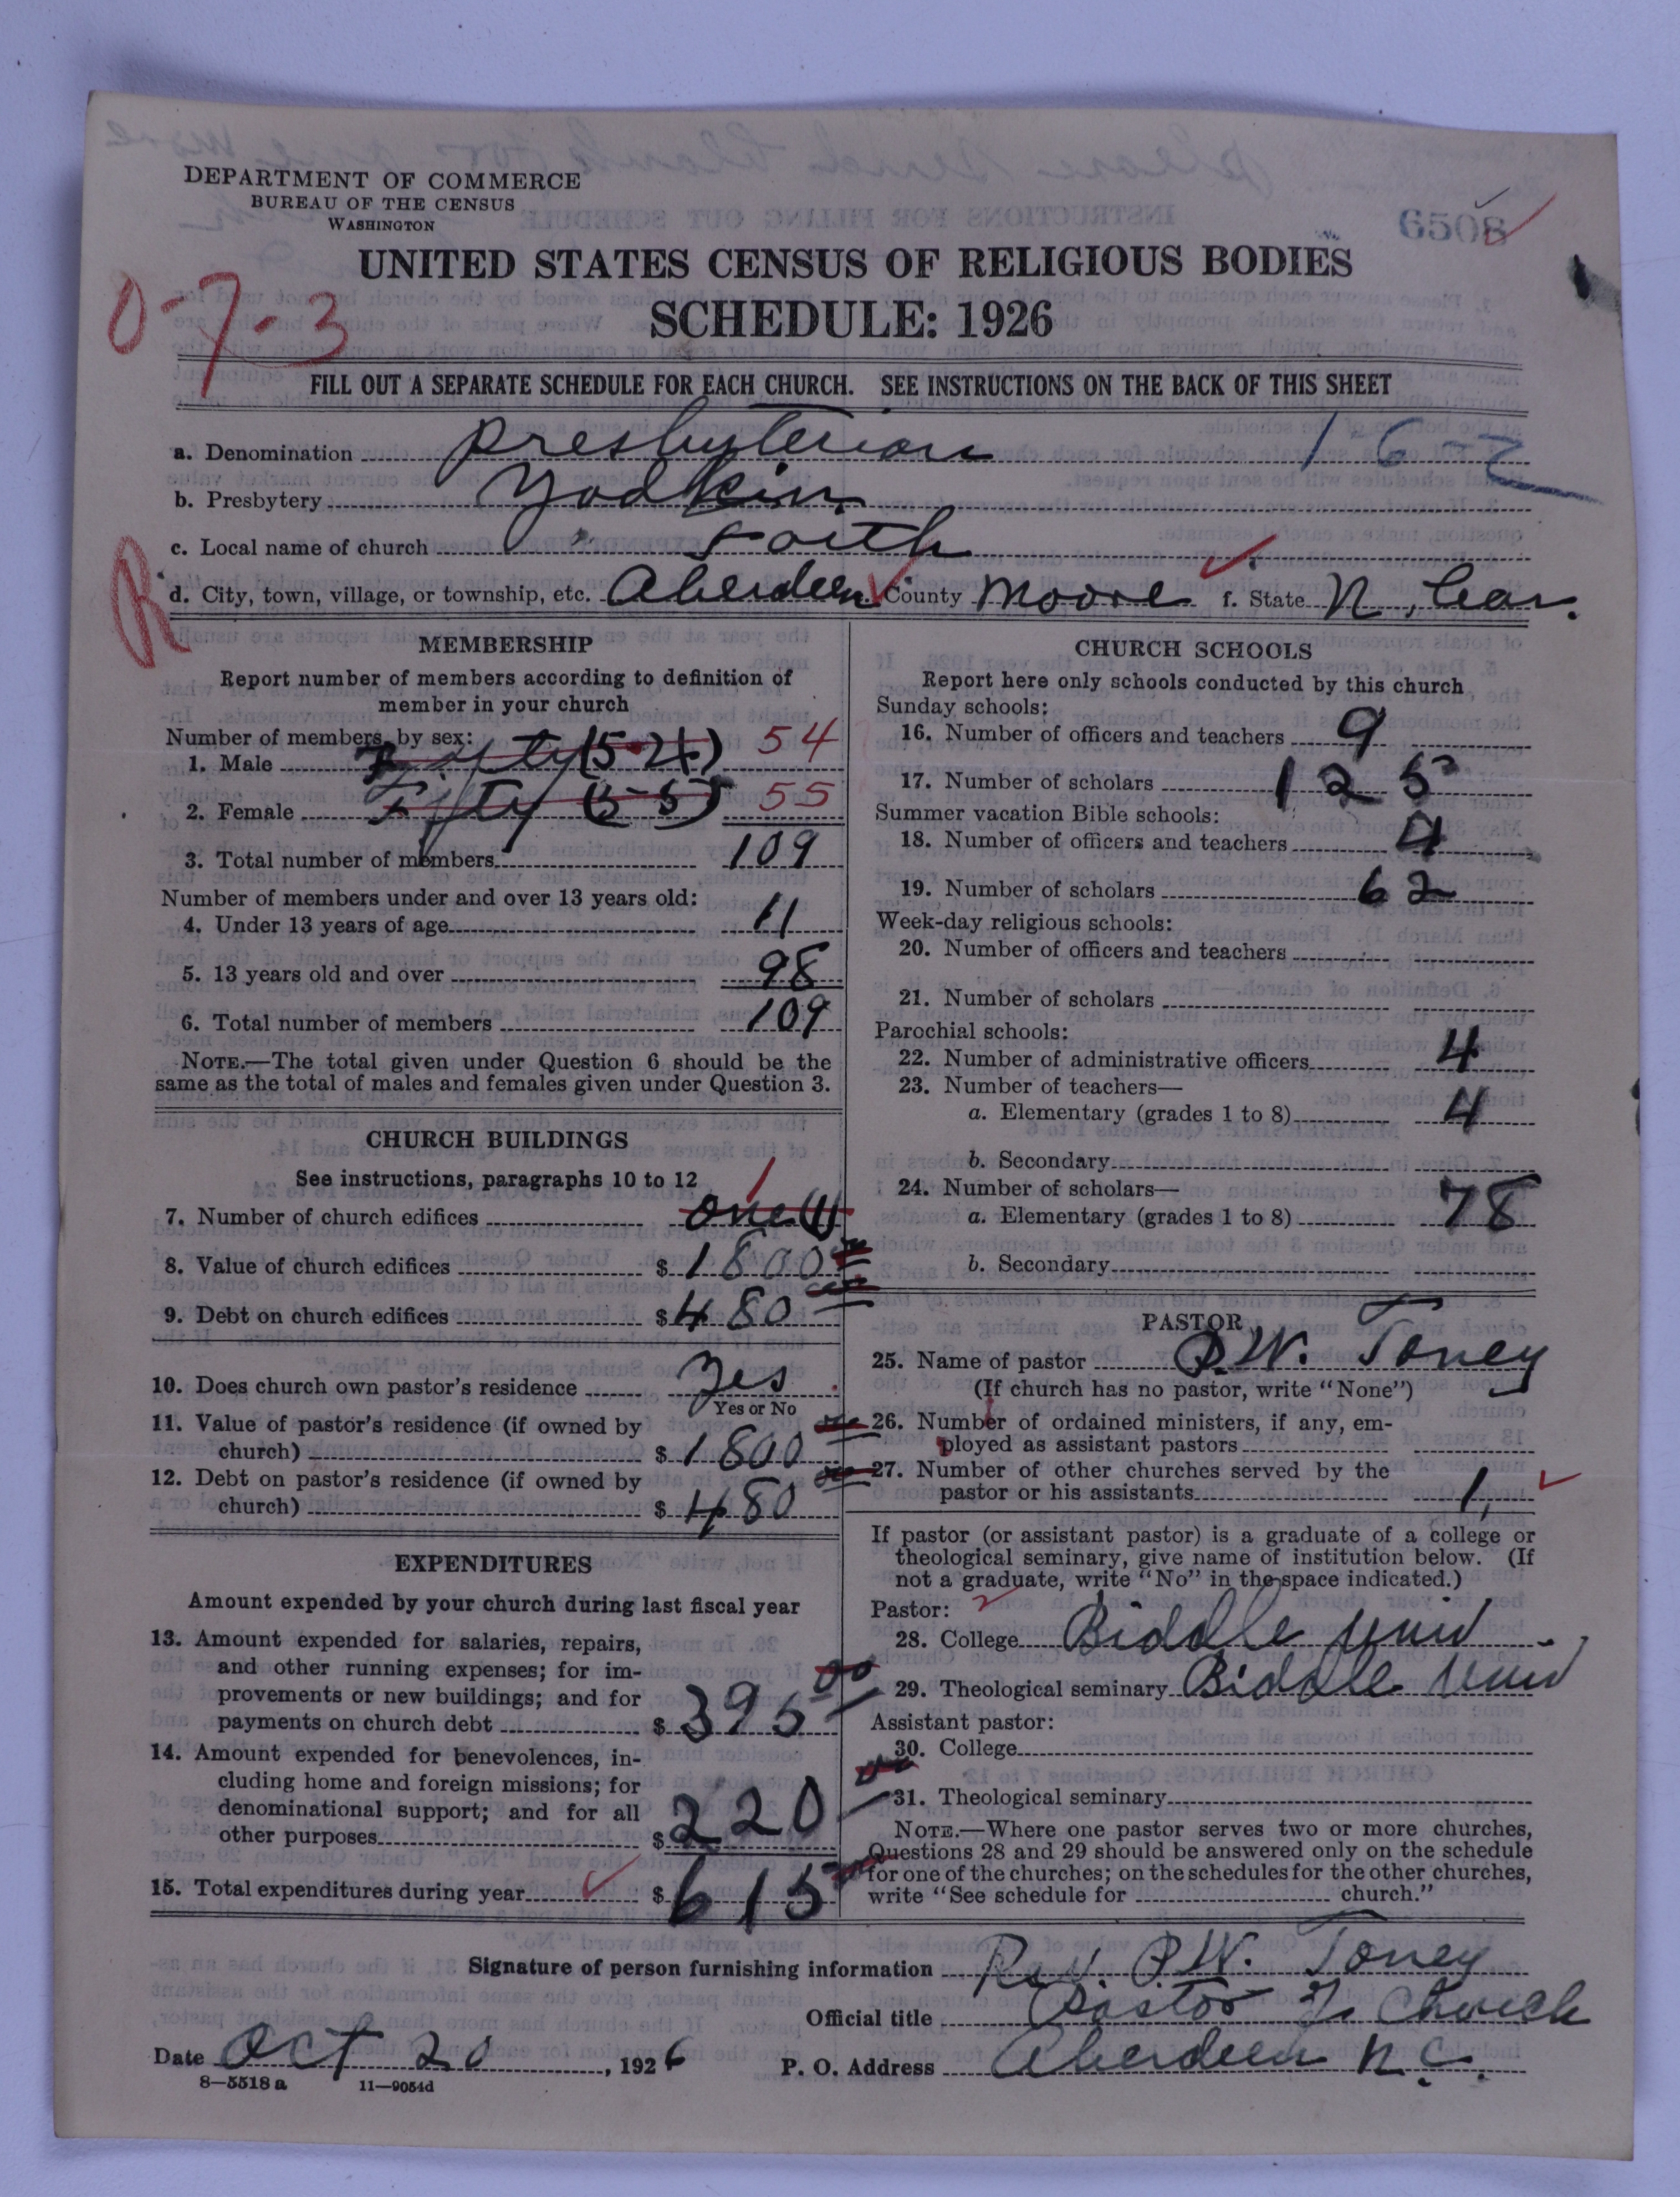 DEPARTMENT OF COMMERCE
BUREAU OF THE CENSUS
WASHINGTON
6508
UNITED STATES CENSUS OF RELIGIOUS BODIES
SCHEDULE: 1926
0-7-3
FILL OUT A SEPARATE SCHEDULE FOR EACH CHURCH. SEE INSTRUCTIONS ON THE BACK OF THIS SHEET
a. Denomination Presbyterian 1-6-2
b. Presbytery Yadkin
c. Local name of church Faith
R
d. City, town, village, or township, etc. Aberdeen County Moore f. State N, Car.
MEMBERSHIP
Report number of members according to definition of
member in your church
Number of members, by sex:
1. Male Fifty (54) 54
2. Female Fifty (55) 55
3. Total number of members 109
Number of members under and over 13 years old:
4. Under 13 years of age 11
5. 13 years old and over 98
6. Total number of members 109
NOTE.—The total given under Question 6 should be the
same as the total of males and females given under Question 3.
CHURCH BUILDINGS
See instructions, paragraphs 10 to 12
7. Number of church edifices one (1) 1
8. Value of church edifices $ 1800 00
9. Debt on church edifices $ 480 00
10. Does church own pastor's residence Yes
Yes or No
11. Value of pastor's residence (if owned by
church) $ 1800 00
12. Debt on pastor's residence (if owned by
church) $ 480 00
EXPENDITURES
Amount expended by your church during last fiscal year
13. Amount expended for salaries, repairs,
and other running expenses; for im-
provements or new buildings; and for
payments on church debt $ 395 00
14. Amount expended for benevolences, in-
cluding home and foreign missions; for
denominational support; and for all
other purposes $ 220 00
15. Total expenditures during year $ 615 00
CHURCH SCHOOLS
Report here only schools conducted by this church
Sunday schools:
16. Number of officers and teachers 9
17. Number of scholars 125
Summer vacation Bible schools:
18. Number of officers and teachers 4
19. Number of scholars 62
Week-day religious schools:
20. Number of officers and teachers
21. Number of scholars
Parochial schools:
22. Number of administrative officers 4
23. Number of teachers—
a. Elementary (grades 1 to 8) 4
b. Secondary
24. Number of scholars—
a. Elementary (grades 1 to 8) 78
b. Secondary
PASTOR
25. Name of pastor P.W. Toney
(If church has no pastor, write "None")
26. Number of ordained ministers, if any, em-
ployed as assistant pastors
27. Number of other churches served by the
pastor or his assistants 1,
If pastor (or assistant pastor) is a graduate of a college or
theological seminary, give name of institution below. (If
not a graduate, write "No" in the space indicated.)
Pastor: 2
28. College Biddle Univ.
29. Theological seminary Biddle Univ
Assistant pastor:
30. College
31. Theological seminary
NOTE.—Where one pastor serves two or more churches,
Questions 28 and 29 should be answered only on the schedule
for one of the churches; on the schedules for the other churches,
write "See schedule for church."
Signature of person furnishing information Rev. P.W. Toney
Official title Pastor Church
Date Oct 20, 1926 P. O. Address Aberdeen N.C.
8—5518 a 11—9054d